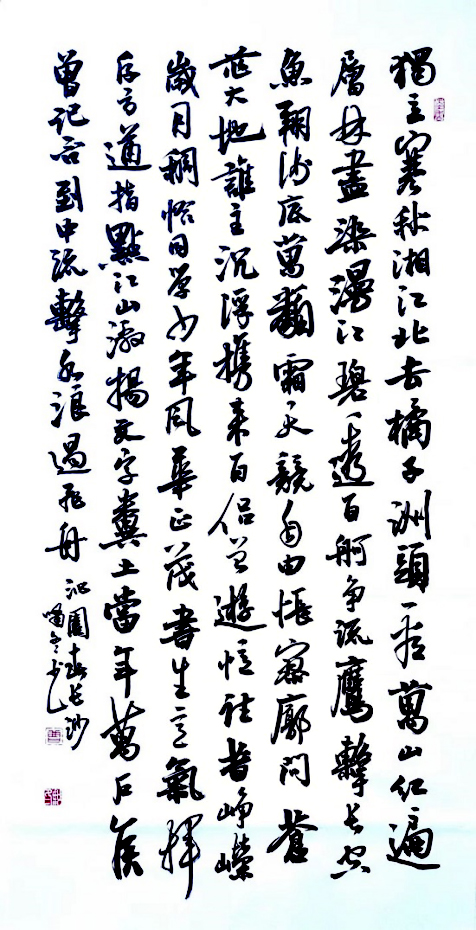 獨立寒秋湘江北去橘子洲頭看萬山红遍
層林盡染漫江碧透百舸争流鷹擊長空
魚翔淺底萬類霜天競自由悵寥廓問蒼
茫大地誰主沉浮携来百侣曾遊憶往昔崢嶸
歲月稠恰同學少年風華正茂書生意氣揮
斥方遒指點江山激揚文字糞土當年萬户侯
曾記否到中流擊水浪遏飛舟
沁園春長沙